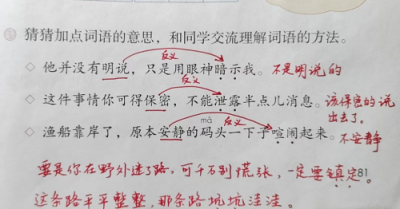 猜猜加点词语的意思，和同学交流理解词语的方法。
反义
◇ 他并没有明说，只是用眼神暗示我。不是明说的
反义
◇ 这件事情你可得保密，不能泄露半点儿消息。该保密的说出去了。
má 反义
◇ 渔船靠岸了，原本安静的码头一下子喧闹起来。不安静
要是你在野外迷了路，可千万别慌张，一定要镇定。81
这条路平平整整，那条路坑坑洼洼。